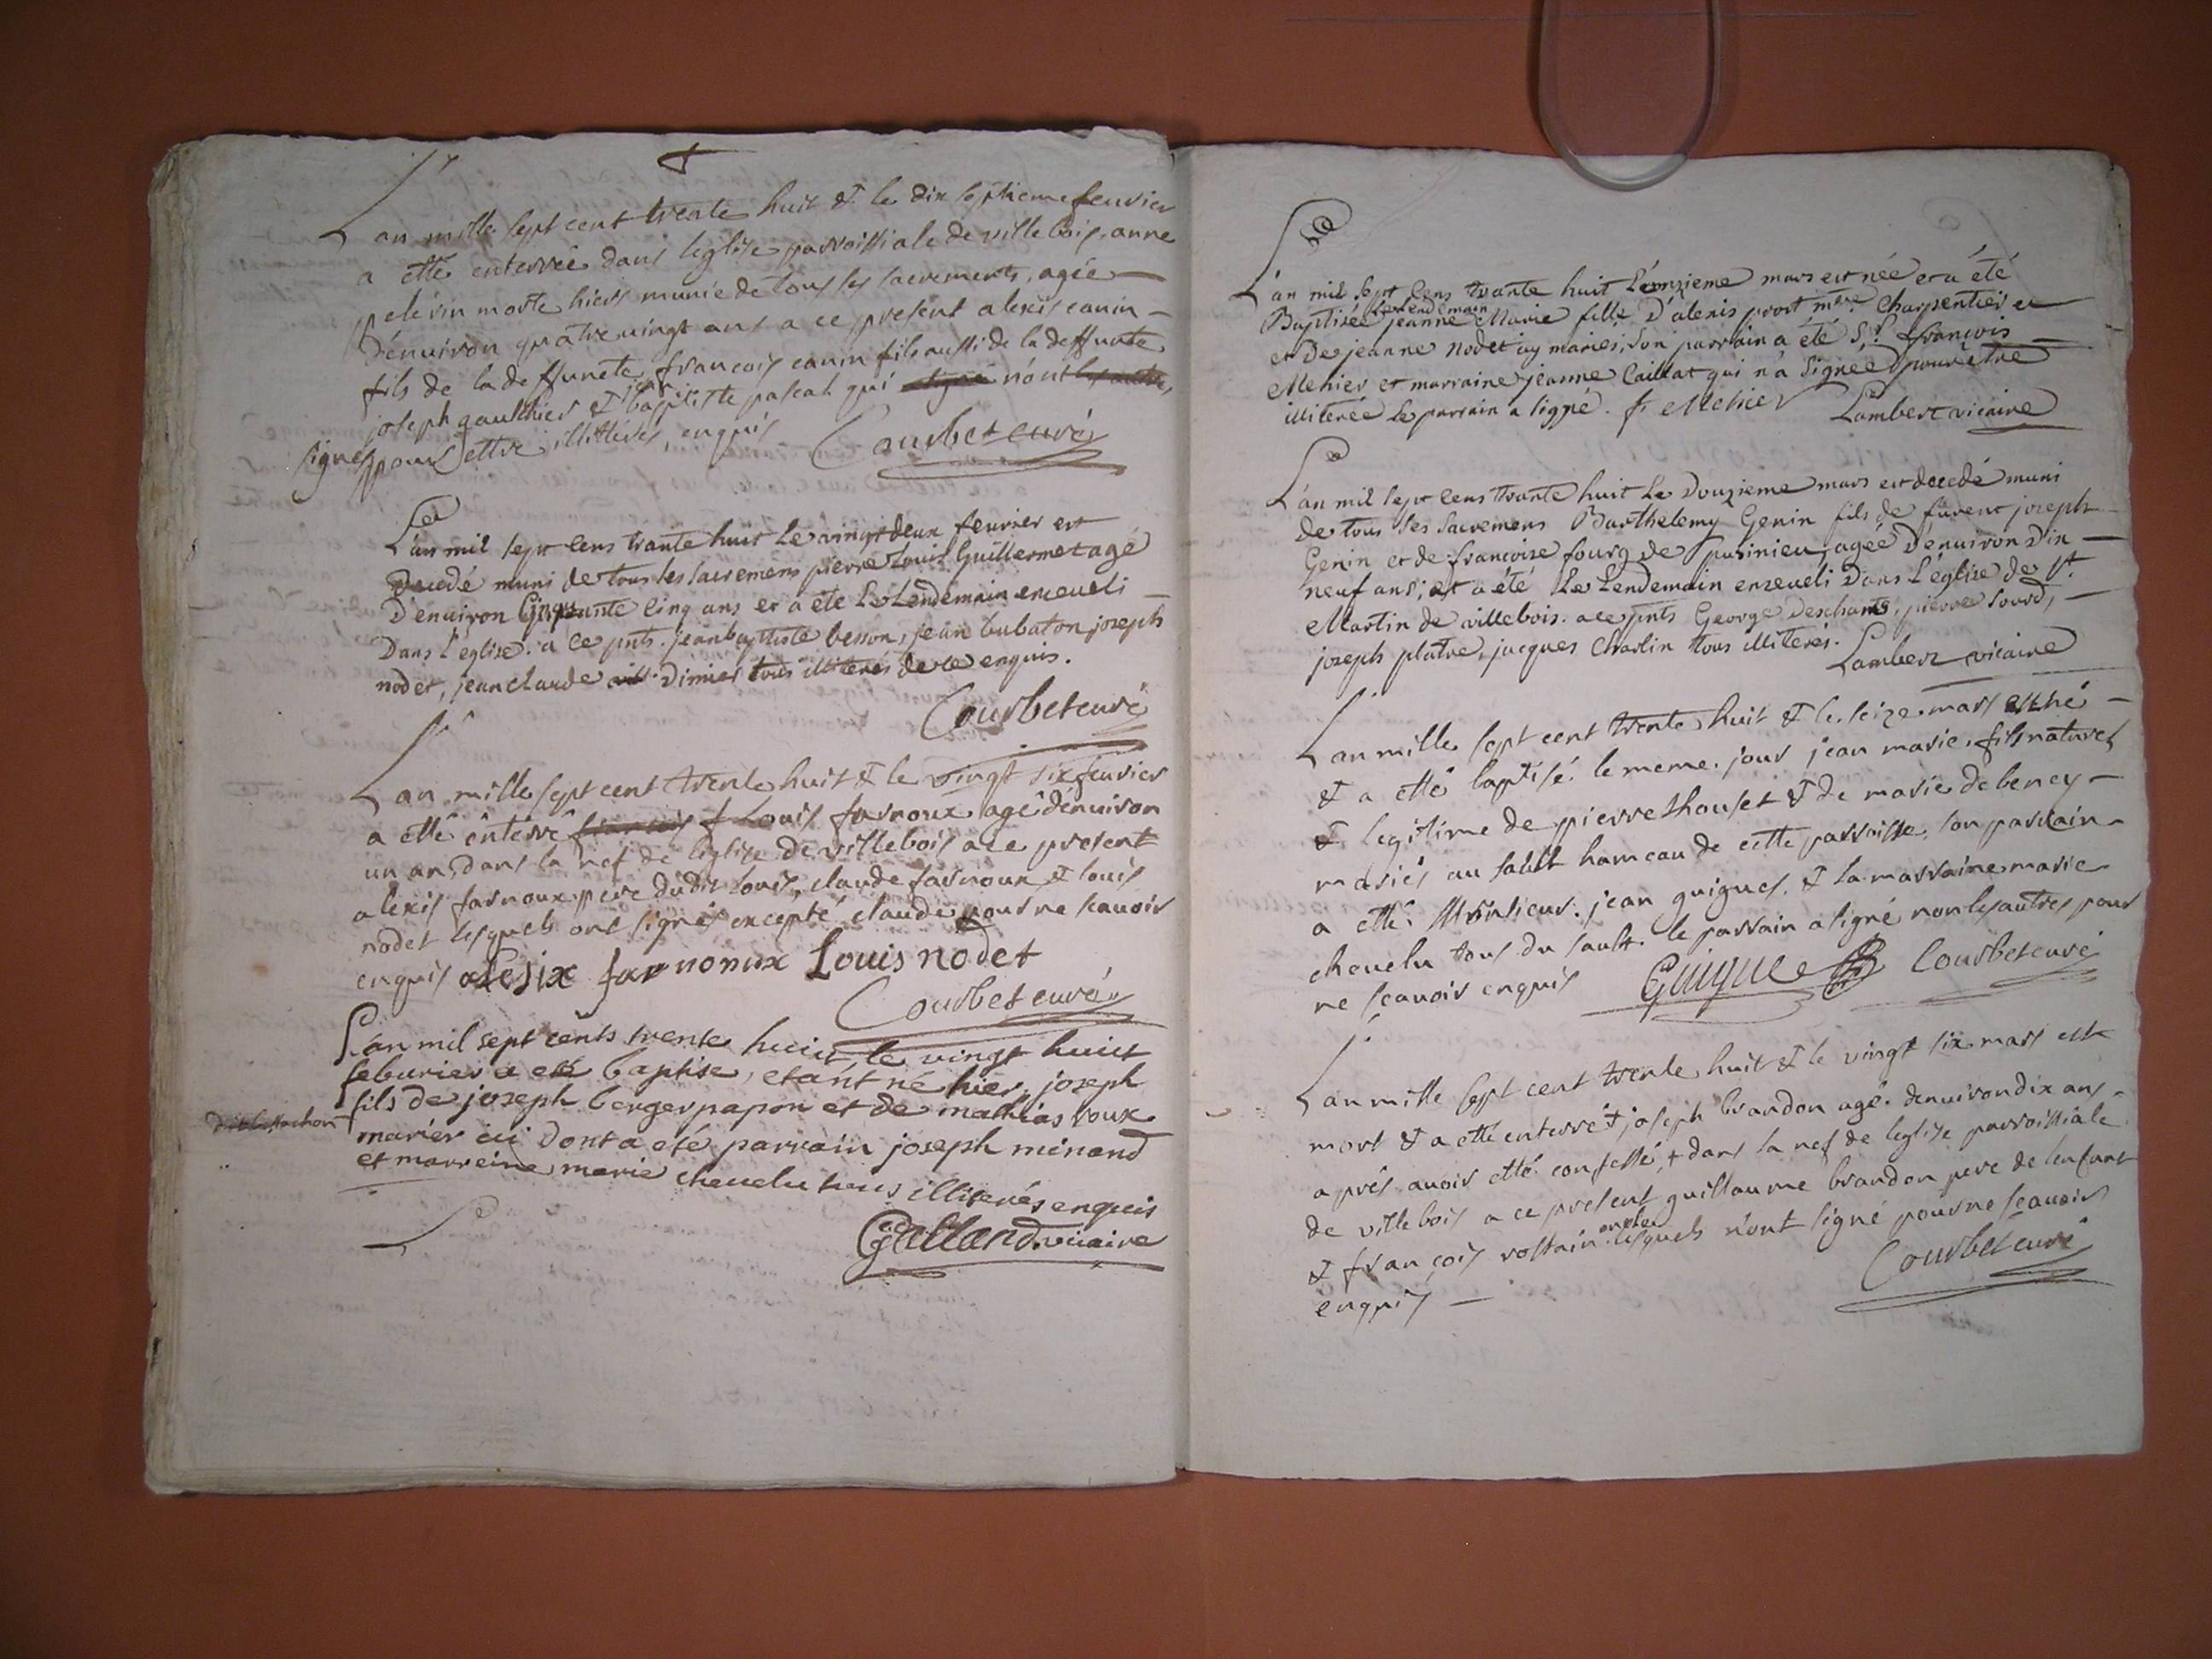 L an mille sept cent trente huit & le dix septieme feuvier
a etté enterrée dans leglise parroissiale de villebois anne
pelérin morte hiers munie de tous les sacrements, agée
dénuiron quatre vingt ans a ce present alexis canin
fils de la deffuncte francois canin fils aussi de la deffunte
joseph gaulthier & jean baptiste pascal qui signé n'ont les autres
signés pour ettre illittérés, enquis Courbet curé
L'an mil sept cens trante huit Le vingt deux feurier est
Decedé muni de tous ses sacremens pierre Louis Guillermet agé
D'enuiron Cinquante cinq ans et a été Le Lendemain enceueli
Dans L'église. a ce pnts. jean baptiste besson, jean bubaton joseph
nodet, jean claude dimier tous illiterés de ce enquis.
Courbet curé
L an mille sept cent trente huit & le vingt six feuvier
a etté énterré francois f Louis farnoux agé dénuiron
un an dans la nef de léglise de villebois a ce present
alexis farnoux pere dudit louis, claude farnoux & louis
nodet lesquels ont signés excepté claude pour ne scauoir
enquis alesix farnonux Louis nodet
Courbet curé
L'an mil sept cents trente huict le vingt huict
feburier a eté baptisé, etant né hier, joseph
fils de joseph berger papon et de mathias roux
mariés ici dont a eté parrain joseph minand
et marreine marie cheuelu tous illiterés enquis
Galland. vicaire
L'an mil sept cens trante huit L'onzieme mars est née et a été
Baptisée Le Lendemain jeanne Marie fille D'alexis prost mtre. Charpentier et
et De jeanne nodet uy mariés, Son parrain a été Sr. françois
Menier et marraine jeanne Caillat qui n'a Signée pour etre
illiterée Le parrain a signé. f. Menier Lambert vicaire
L'an mil sept cens trante huit Le Douzieme mars est decedé muni
de tous ses sacremens Barthelemy Genin fils de furent joseph
Genin et de francoise fourg de pusinieu, agée D'enuiron Dix
neuf ans; et a été Le Lendemain enseueli Dans L'église de St.
Martin de villebois. a ce pnts George Deschams, pierre Sourd,
joseph platre, jacques Charlin tous illiterés.
Lambert vicaire
L an mille sept cent trente huit & le seize mars est né
& a etté baptisé le meme jour jean marie fils naturel
& legitime de pierre thouset & de marie de beney
mariés au sault hameau de cette parroisse, son parrain
a etté Monsieur jean guigues & la marraine marie
cheuelu tous du sault. le parrain a signé non les autres pour
ne scauoir enquis Guigue Courbet curé
L an mille sept cent trente huit & le vingt six mars est
mort & a etté enterré joseph brandon agé denuiron dix ans
aprés auois etté confessé, dans la nef de leglise parroissiale
de villebois a ce present guillaume brandon pere de lenfant
& françois rostain oncle lesquels n'ont signé pour ne scauoir
enquis Courbet curé